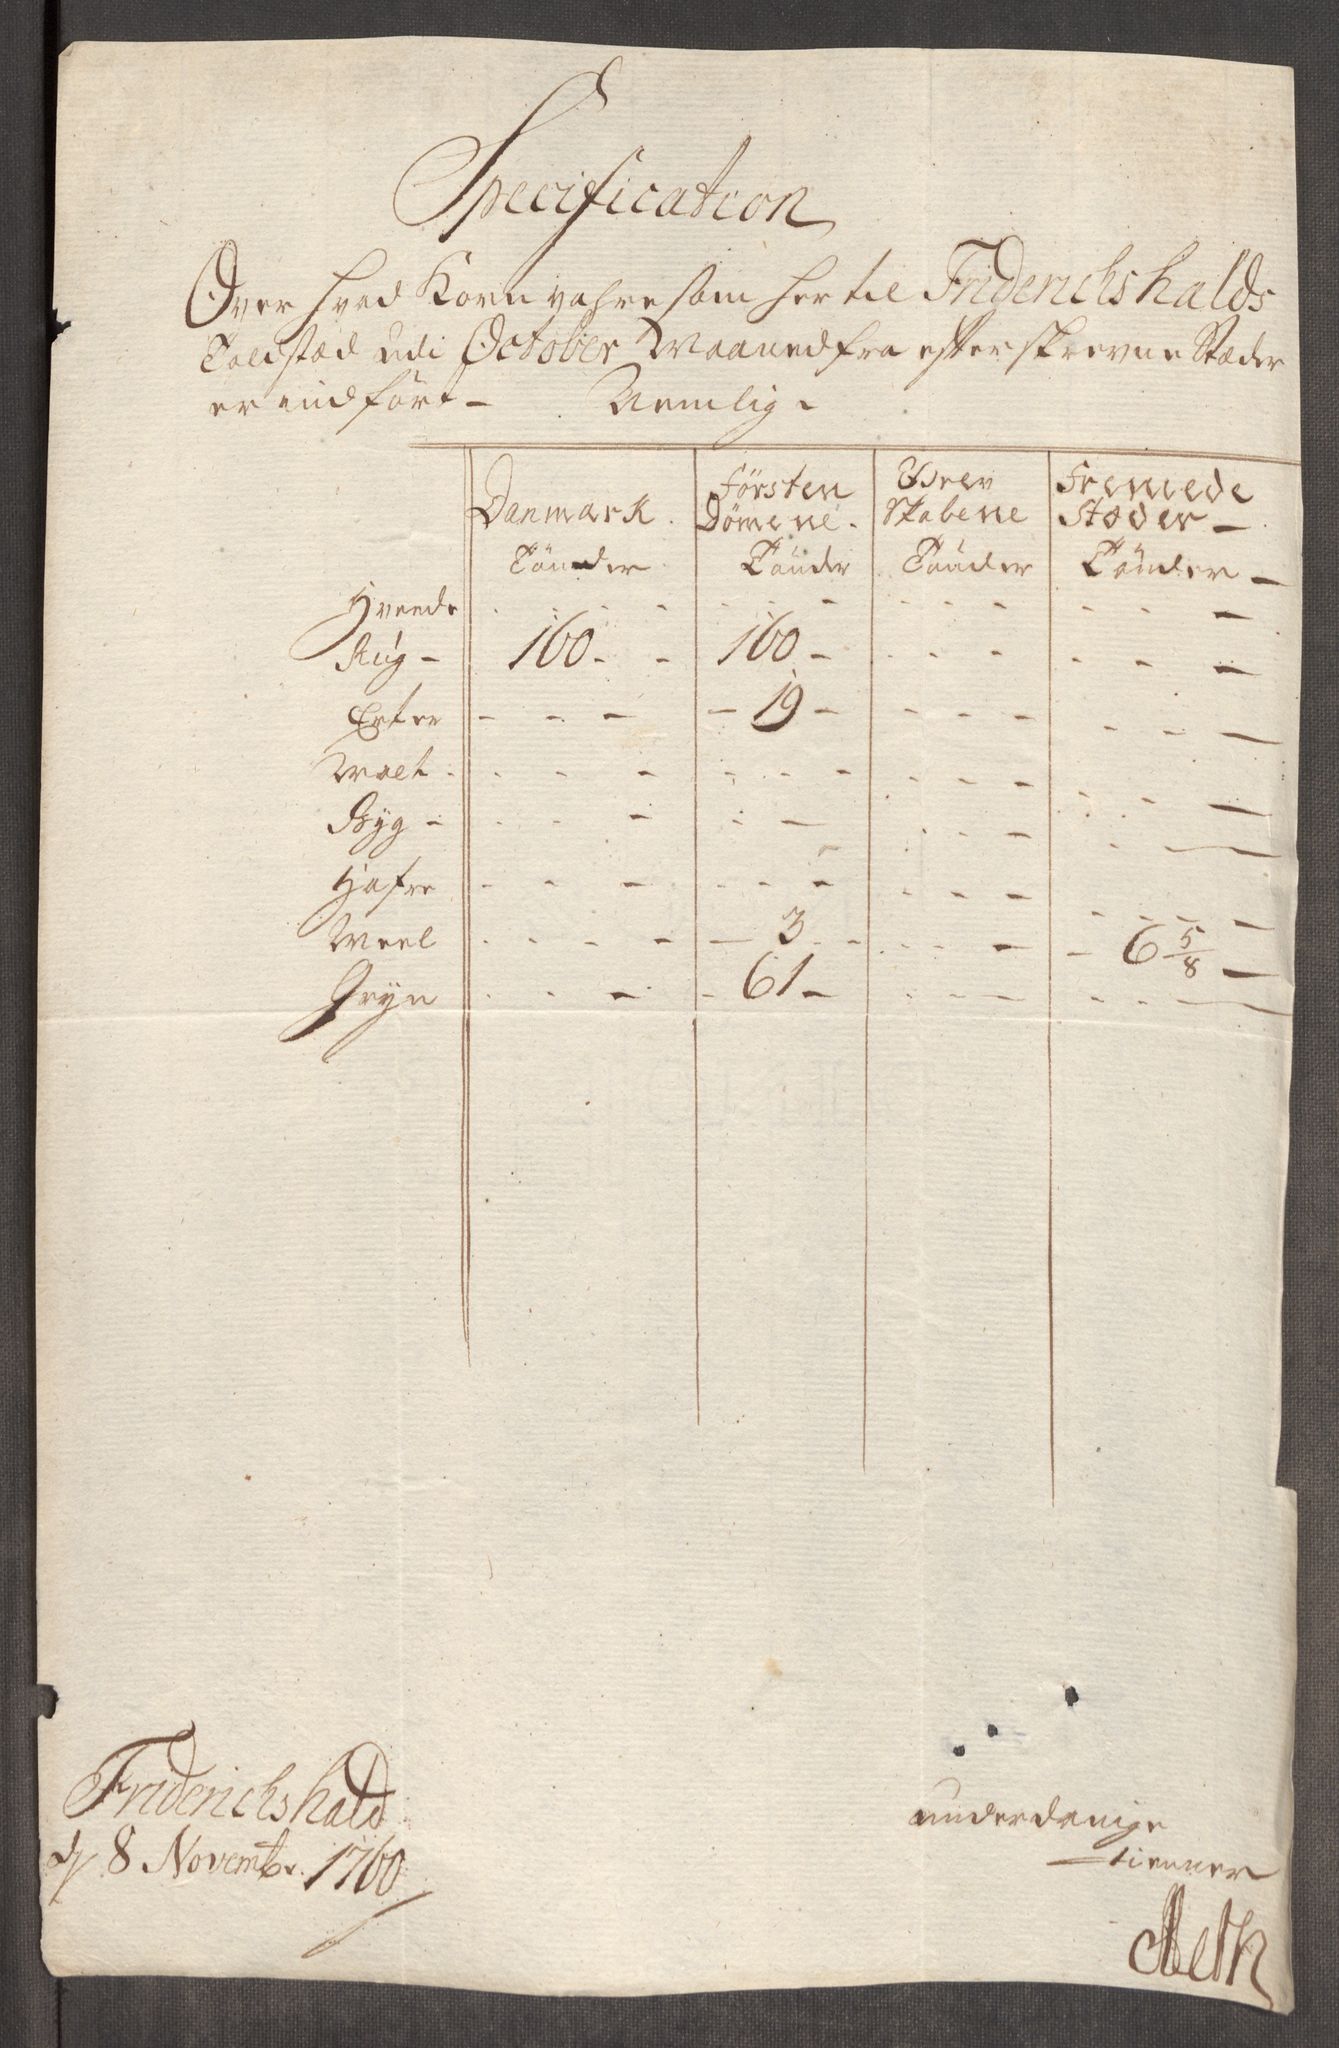 Specification
Over hvad Korn vahre som her til Friderichshalds
Toldstæd udi October Maaned fra efterskrevne Stæder
er indført - Nemlig -
Danmark. Førsten Dømene. Grev Skabene Fremede Stæder -
Tønder Tønder Tønder Tønder -
Hveede - - - - - - - - - - - -
Rug - 160 - - 160 - - - - - - -
Erter - - - - 19 - - - - - - -
Malt - - - - - - - - - - - -
Byg - - - - - - - - - - - -
Hafre - - - - - - - - - - - -
Meel - - - - - 3 - - - - - - 6 5/8 -
Gryn - - - - 61 - - - - - - - -
Friderichshald
d/ 8 Novembr. 1760
underdanige
tienner